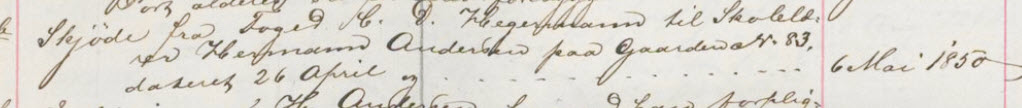 Skjöde fra Foged C. D. Hegermann til Skolelæ-
rer Hermann Andersen paa Gaarden No. 83,
dateret 26 April og - - - - - - - - - - 6 Mai 1850
H. Andersen
forplig-